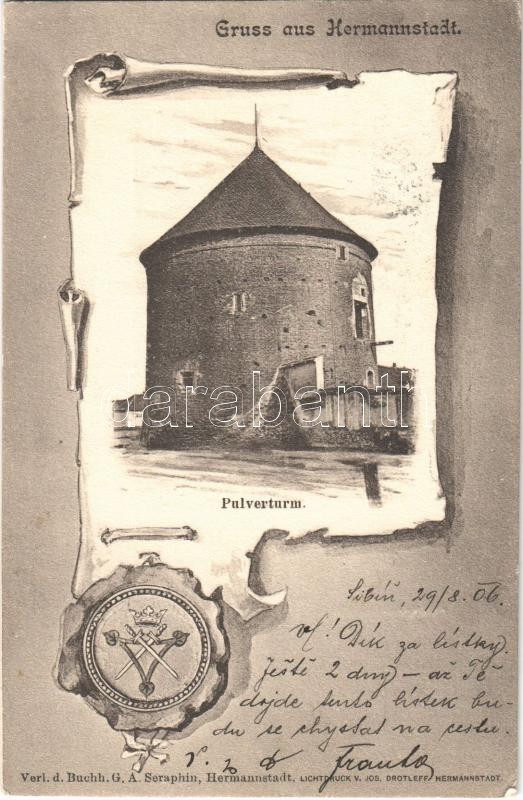 Gruss aus Hermannstadt.
darabanth
Pulverturm.
Sibiň, 29/8. 06.
Dík za lístky.
Ještě 2 dny – až Tě
dojde tento lístek bu-
du se chystat na cestu.
Franta
Verl. d. Buchh. G. A. Seraphin, Hermannstadt. LICHTDRUCK V. JOS. DROTLEFF, HERMANNSTADT.